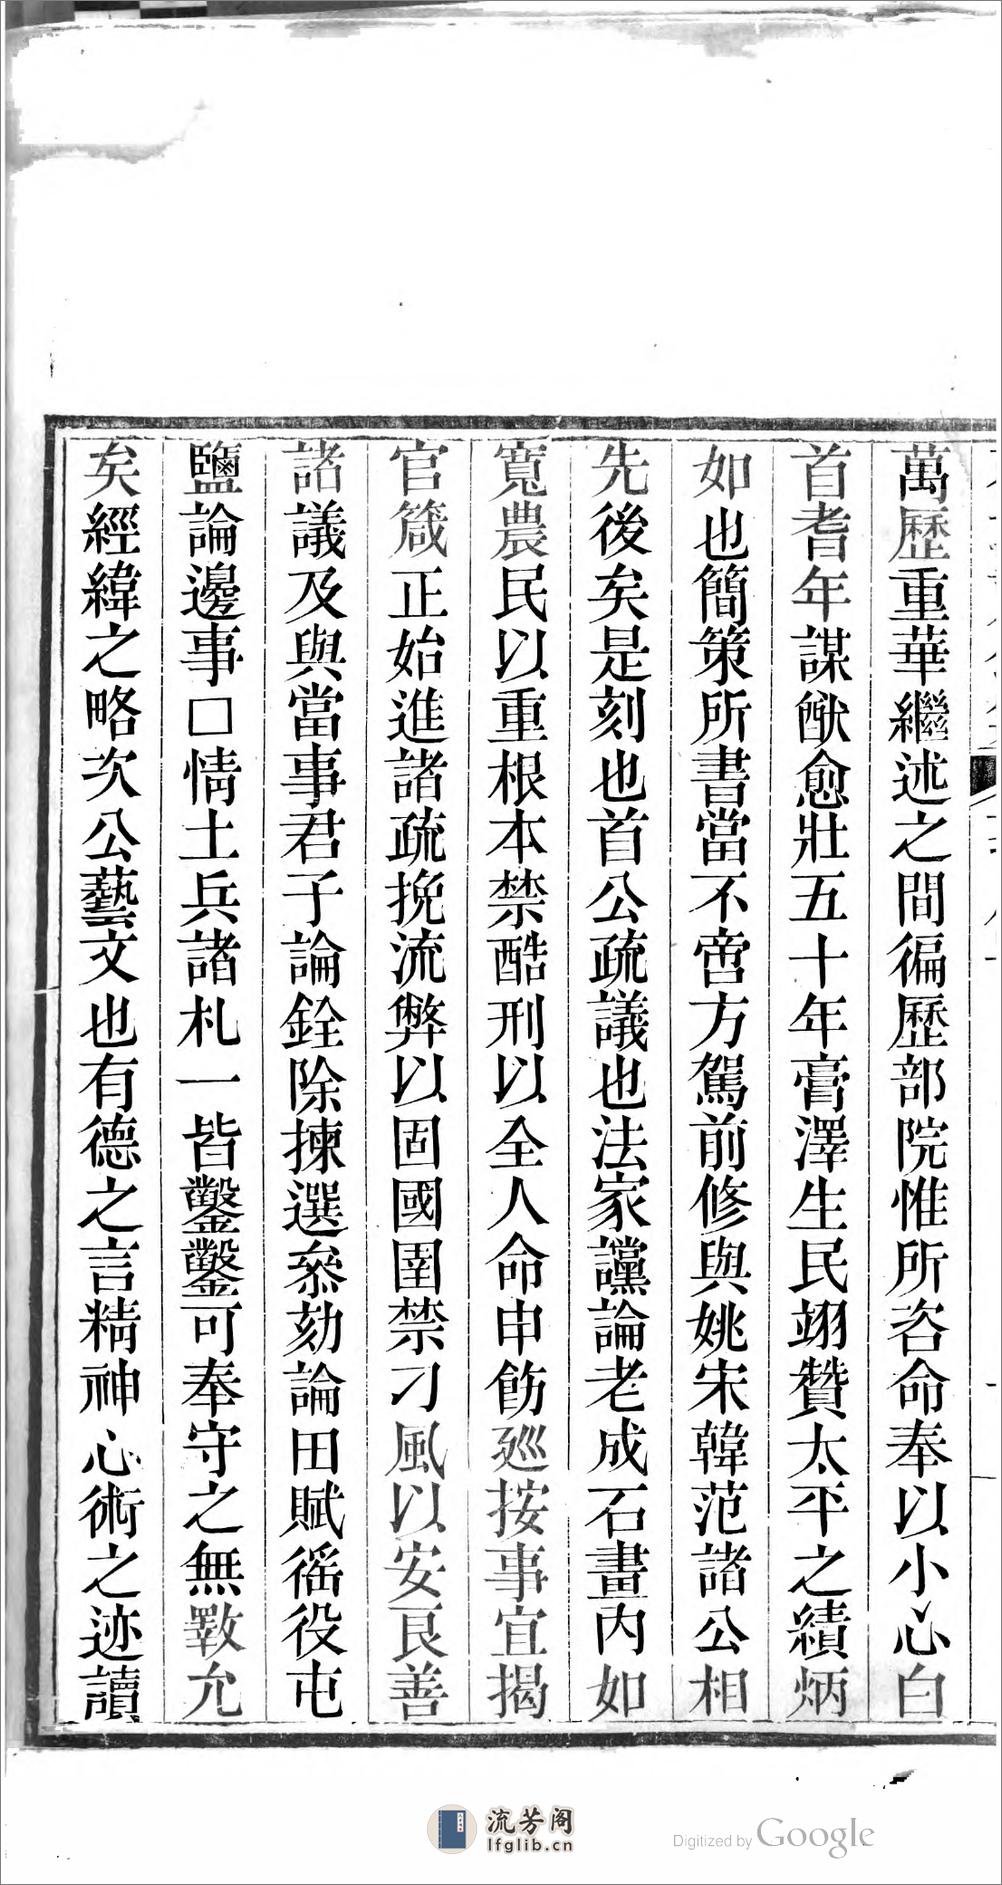 萬歷重華繼述之間徧歷部院惟所咨命奉以小心白
首耆年謀猷愈壯五十年膏澤生民翊贊太平之績炳
如也簡策所書當不啻方駕前修與姚宋韓范諸公相
先後矣是刻也首公疏議也法家讜論老成石畫内如
寬農民以重根本禁酷刑以全人命申飭廵按事宜揭
官箴正始進諸疏挽流弊以固國圉禁刁風以安良善
諸議及與當事君子論銓除揀選叅劾論田賦徭役屯
鹽論邊事□情土兵諸札一皆鑿鑿可奉守之無斁允
矣經緯之略次公藝文也有德之言精神心術之迹讀
流芳阁
lfglib.cn
Digitized by Google